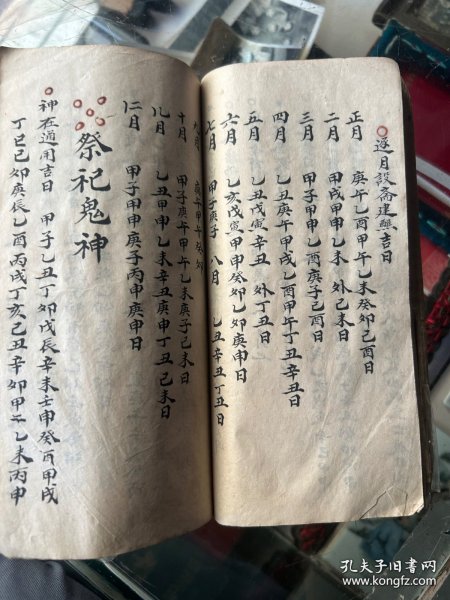 逐月設斋建醮吉日
正月 庚午乙酉甲午乙未癸卯己酉日
二月 甲戌甲申乙未 外己未日
三月 甲子甲申乙酉庚子己酉日
四月 乙丑庚午甲戌乙酉甲午丁丑辛丑日
五月 乙丑戊寅辛丑 外丁丑日
六月 乙亥戊寅甲申癸卯乙卯庚申日
七月 甲子庚子 八月 乙丑辛丑丁丑日
九月 庚午甲午癸卯
十月 甲子庚午甲午乙未庚子己未日
乙丑甲申乙未辛丑庚申丁丑己未日
甲子甲申庚子丙申庚申日
祭祀鬼神
神在通用吉日 甲子乙丑丁卯戊辰辛未壬申癸酉甲戌
丁巳己卯庚辰乙酉丙戌丁亥己丑辛卯甲午乙未丙申
孔夫子旧书网
www.kongfz.com